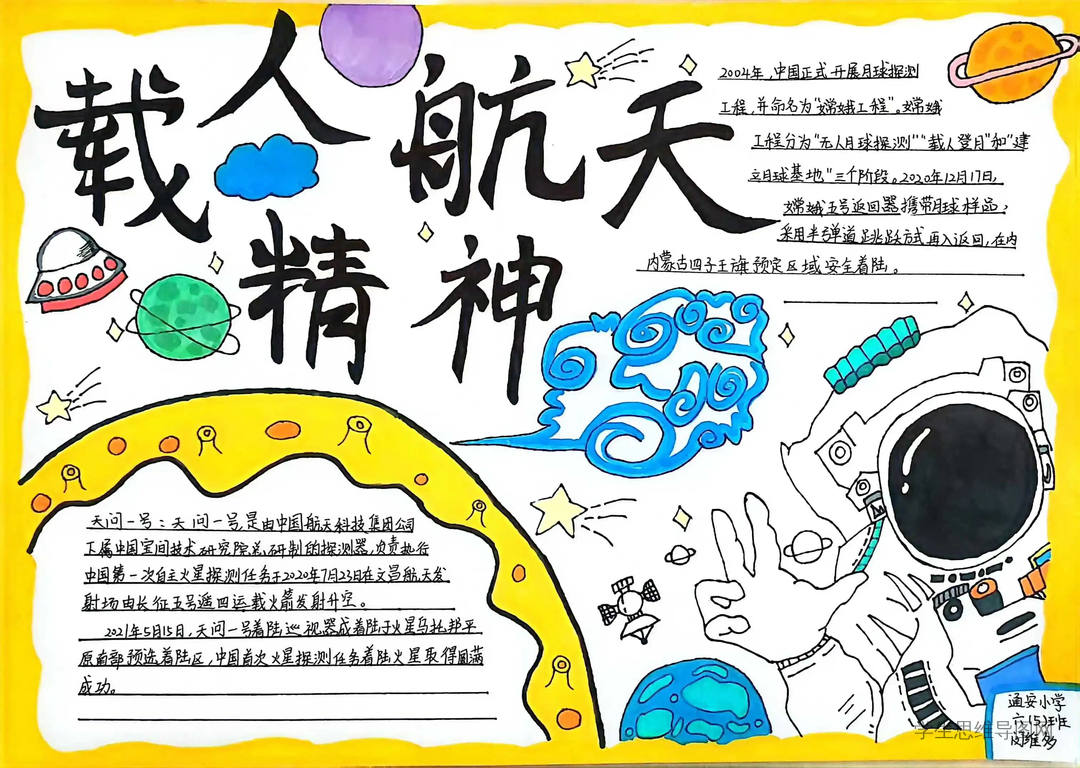 载人航天
精神
2004年，中国正式开展月球探测
工程，并命名为“嫦娥工程”。嫦娥
工程分为“无人月球探测”“载人登月”和“建
立月球基地”三个阶段。2020年12月17日，
嫦娥五号返回器携带月球样品，
采用半弹道跳跃方式再入返回，在内
内蒙古四子王旗预定区域安全着陆。
天问一号：天问一号，是由中国航天科技集团公司
下属中国空间技术研究院总研制的探测器，负责执行
中国第一次自主火星探测任务于2020年7月23日在文昌航天发
射场由长征五号遥四运载火箭发射升空。
2021年5月15日，天问一号着陆巡视器成着陆于火星乌托邦平
原南部预选着陆区，中国首次火星探测任务着陆火星取得圆满
成功。
通安小学
六(5)班
学生思维导图网